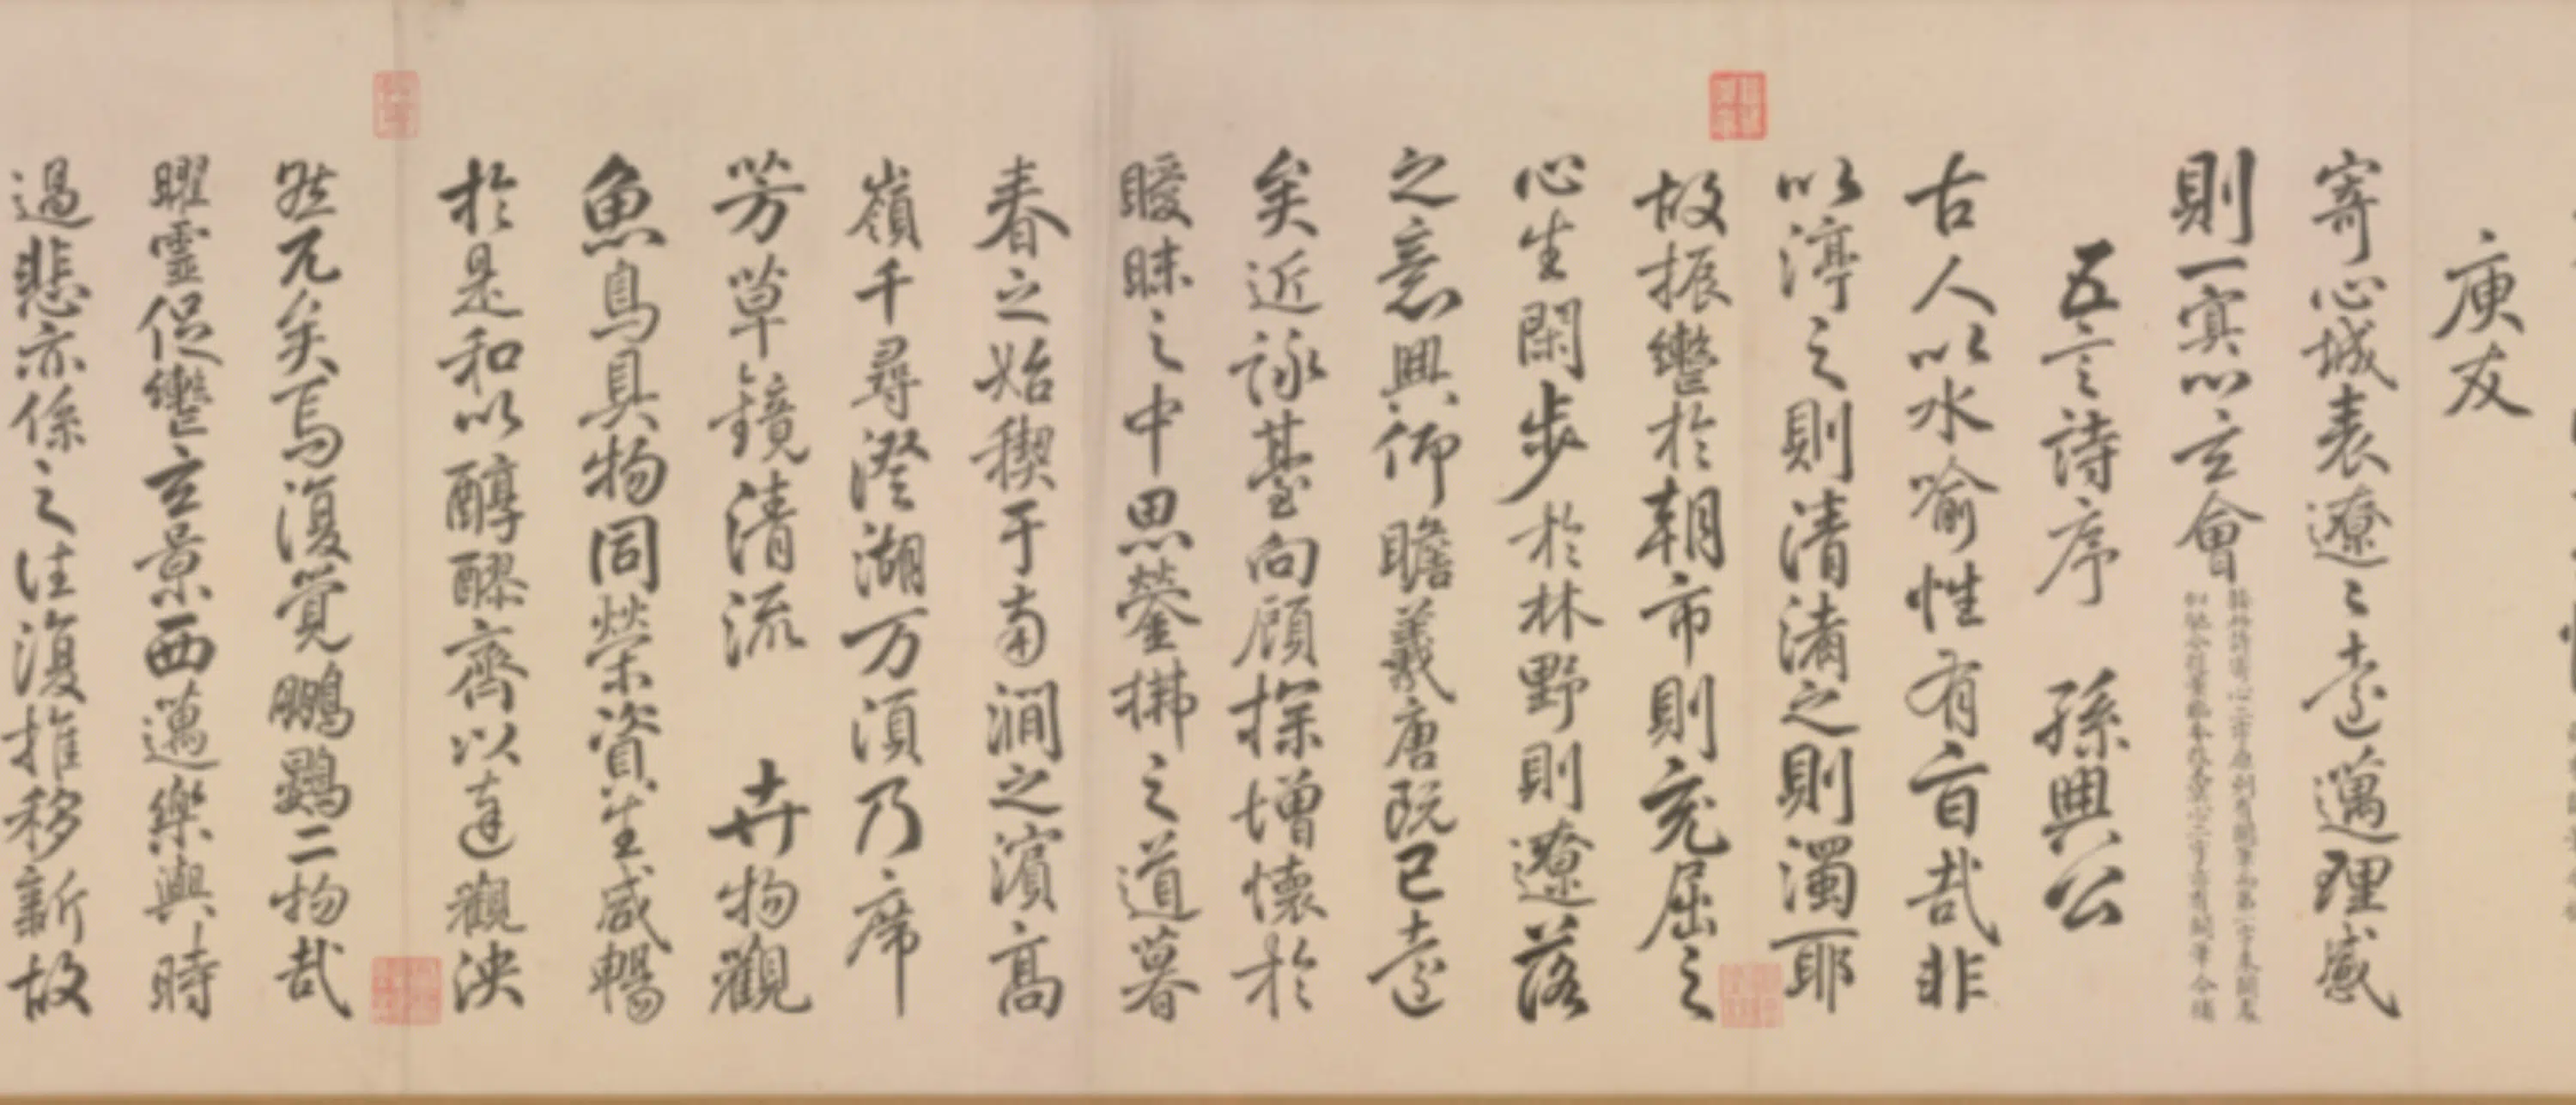 庾友
寄心城表遼〻遠邁理感
則一冥以玄會
五言詩序 孫興公
古人以水喻性有旨哉非
以渟之則清淆之則濁耶
故振轡於朝市則充屈之
心生閑步於林野則遼落
之意興仰瞻羲唐既已遠
矣近詠基向顧探增懷於
曖昧之中思縈拂之道暮
春之始禊于南澗之濱高
嶺千尋澄湖万湏乃席
芳草鏡清流 卉物觀
魚鳥具物同榮資生咸暢
於是和以醇醪齊以達觀泱
然兀矣焉復覺鵬鷃二物哉
曜靈促轡玄景西邁樂與時
過悲亦係之往復推移新故